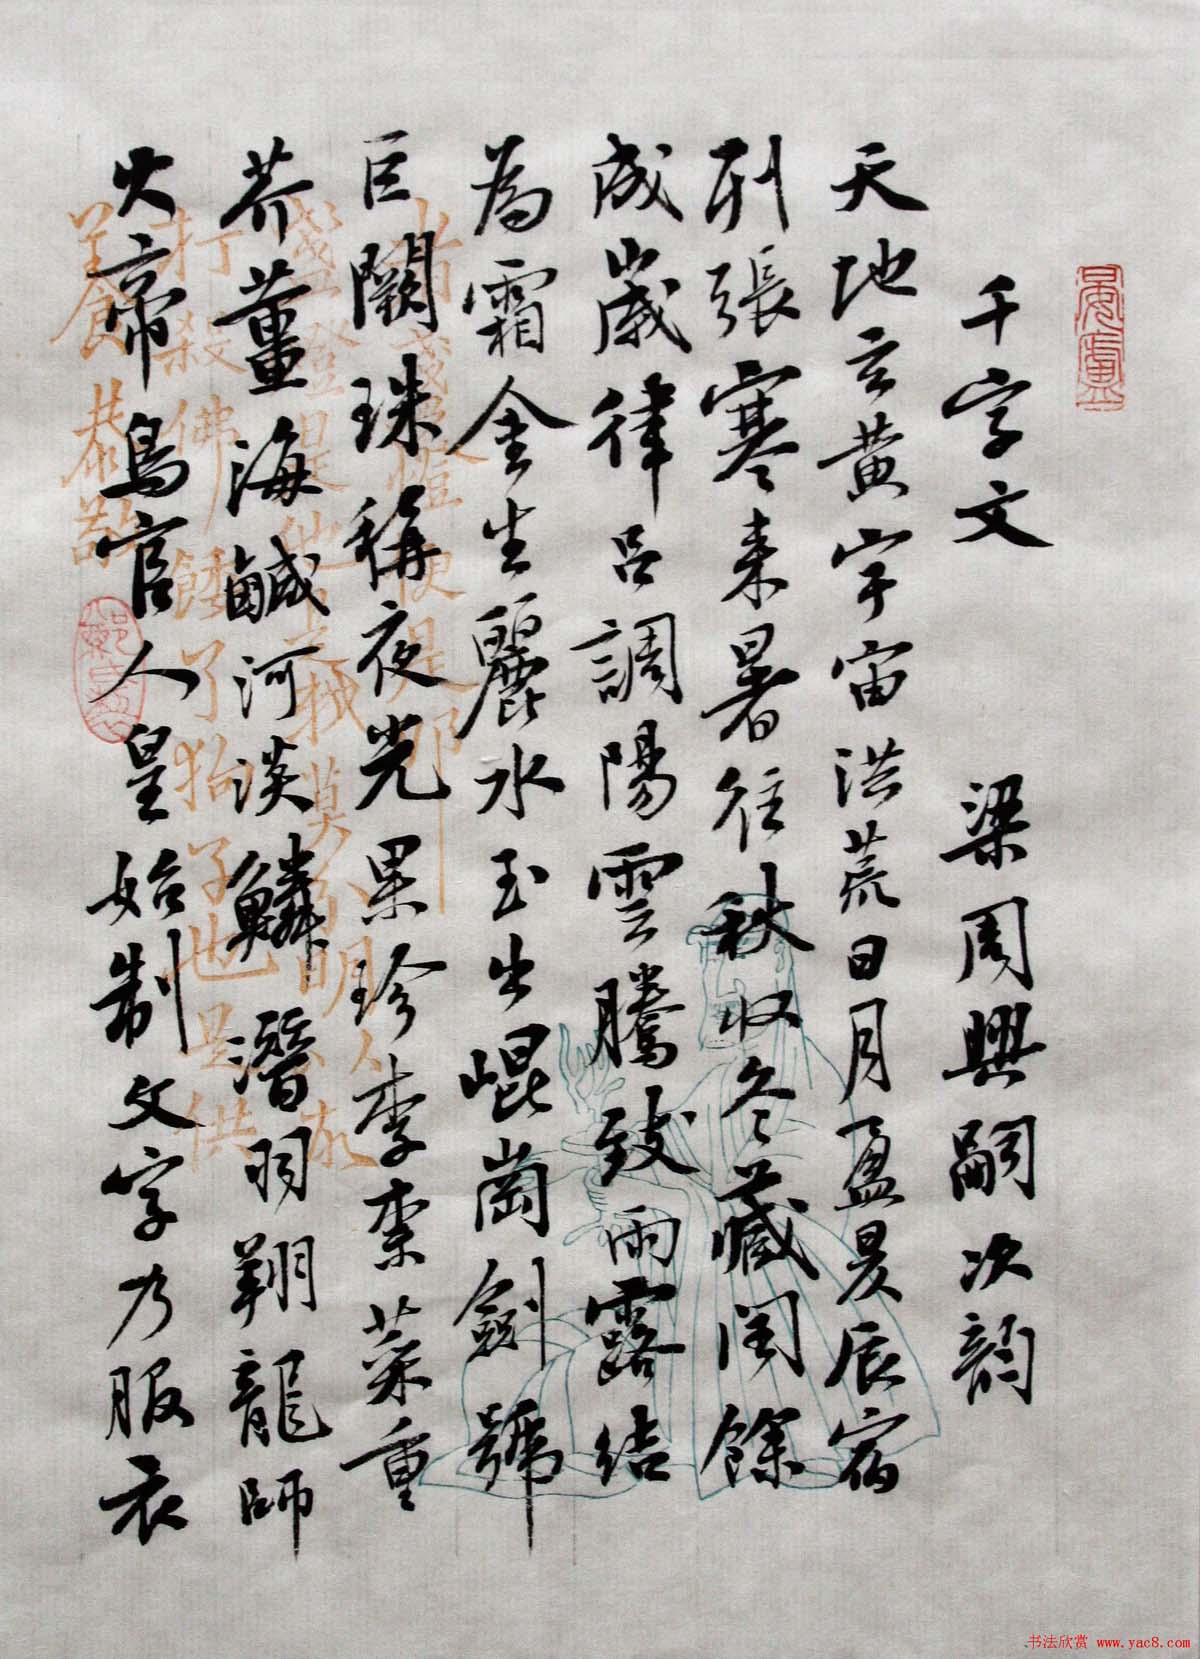 千字文 梁周興嗣次韵
天地玄黄宇宙洪荒日月盈昃辰宿
列張寒来暑往秋收冬藏閏餘
成歲律吕調陽雲騰致雨露結
為霜金生麗水玉出崐崗劍號
巨闕珠稱夜光果珍李柰菜重
芥薑海鹹河淡鱗潛羽翔龍師
火帝鳥官人皇始制文字乃服衣
书法欣赏 www.yac8.com